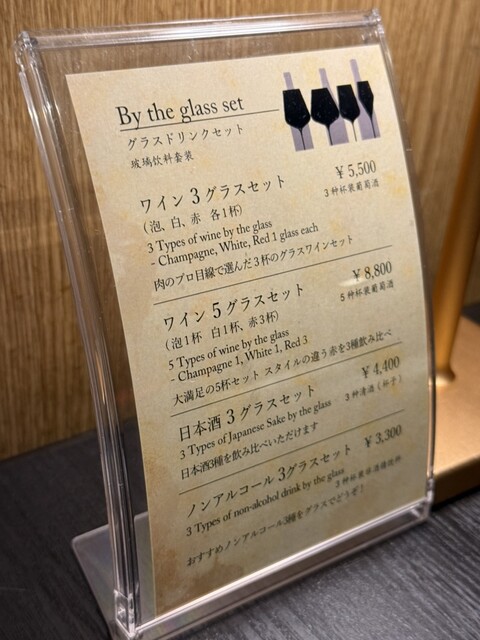 By the glass set
グラスドリンクセット
玻璃饮料套装
ワイン3グラスセット ¥5,500
（泡、白、赤 各1杯） 3种杯装葡萄酒
3 Types of wine by the glass
- Champagne, White, Red 1 glass each
肉のプロ目線で選んだ3杯のグラスワインセット
ワイン5グラスセット ¥8,800
（泡1杯 白1杯、赤3杯） 5种杯装葡萄酒
5 Types of wine by the glass
- Champagne 1, White 1, Red 3
大満足の5杯セット スタイルの違う赤を3種飲み比べ
日本酒3グラスセット ¥4,400
3 Types of Japanese Sake by the glass 3种清酒（杯子）
日本酒3種を飲み比べいただけます
ノンアルコール3グラスセット ¥3,300
3 Types of non-alcohol drink by the glass 3种杯装非酒精饮料
おすすめノンアルコール3種をグラスでどうぞ！